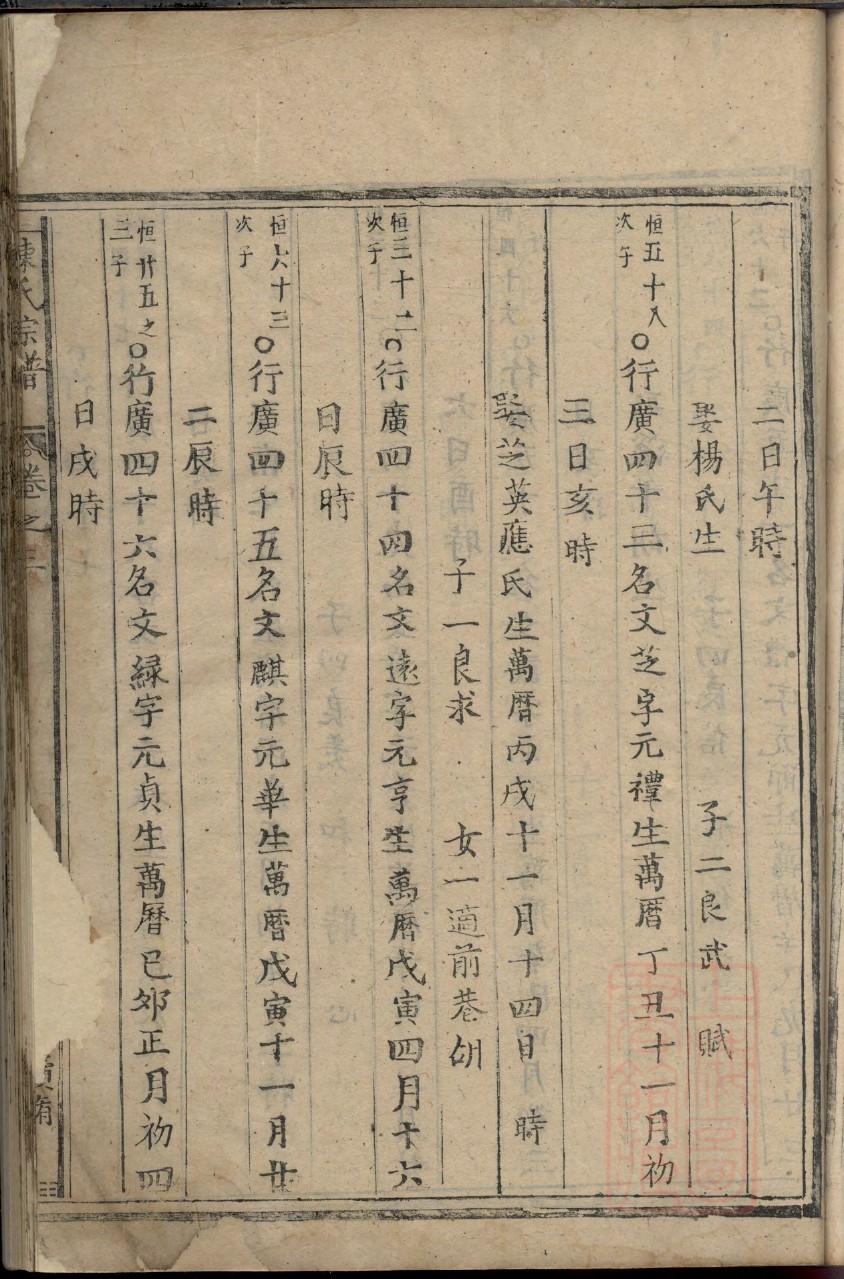 二日午時
娶楊氏生 子二良武 賦
恒五十八
次子
○行廣四十三名文芝字元禮生萬曆丁丑十一月初
三日亥時
娶芝英應氏生萬曆丙戌十一月十四日 時
子一良求 女一適前巷胡
恒三十二
次子
○行廣四十四名文遠字元亨生萬曆戊寅四月十六
日辰時
恒六十三
次子
○行廣四十五名文麒字元華生萬曆戊寅十一月廿
二辰時
恒廿五之
三子
○行廣四十六名文緑字元貞生萬曆己夘正月初四
日戌時
陳氏宗譜 卷之三